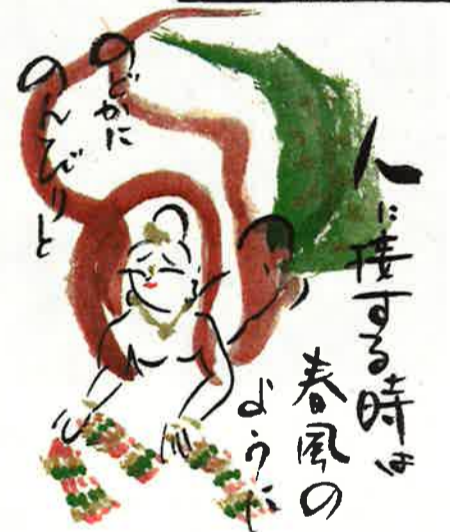 人に接する時は
春風の
ように
のどかに
のんびりと